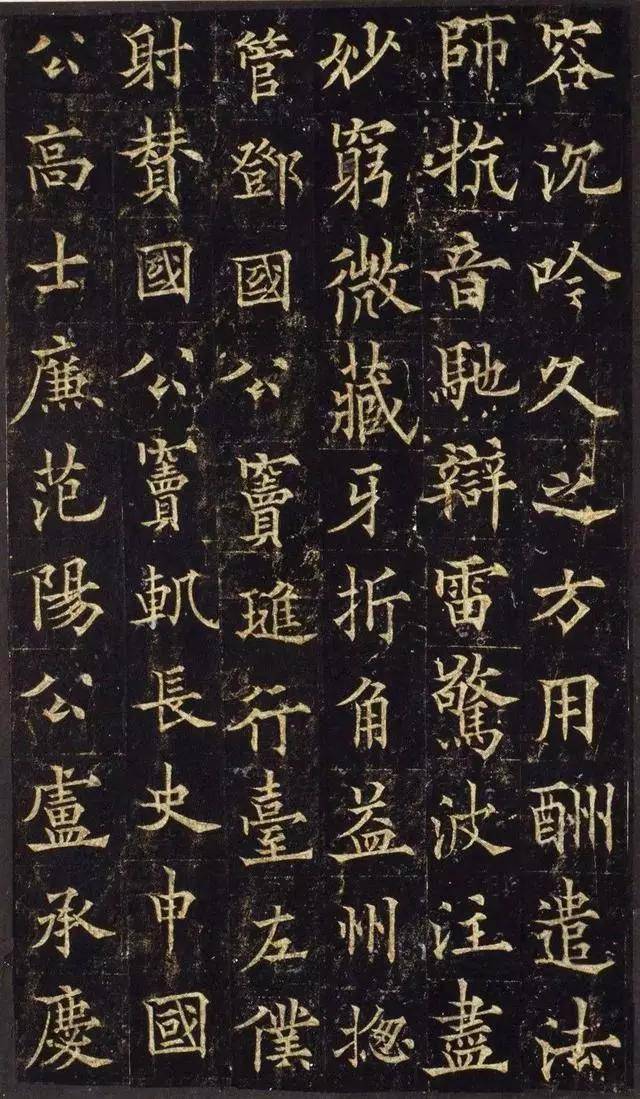 容沉吟久之方用酬遣法
師抗音馳辯雷驚波注盡
妙窮微藏牙折角益州揔
管鄧國公竇璡行臺左僕
射贊國公竇軌長史申國
公高士廉范陽公盧承慶